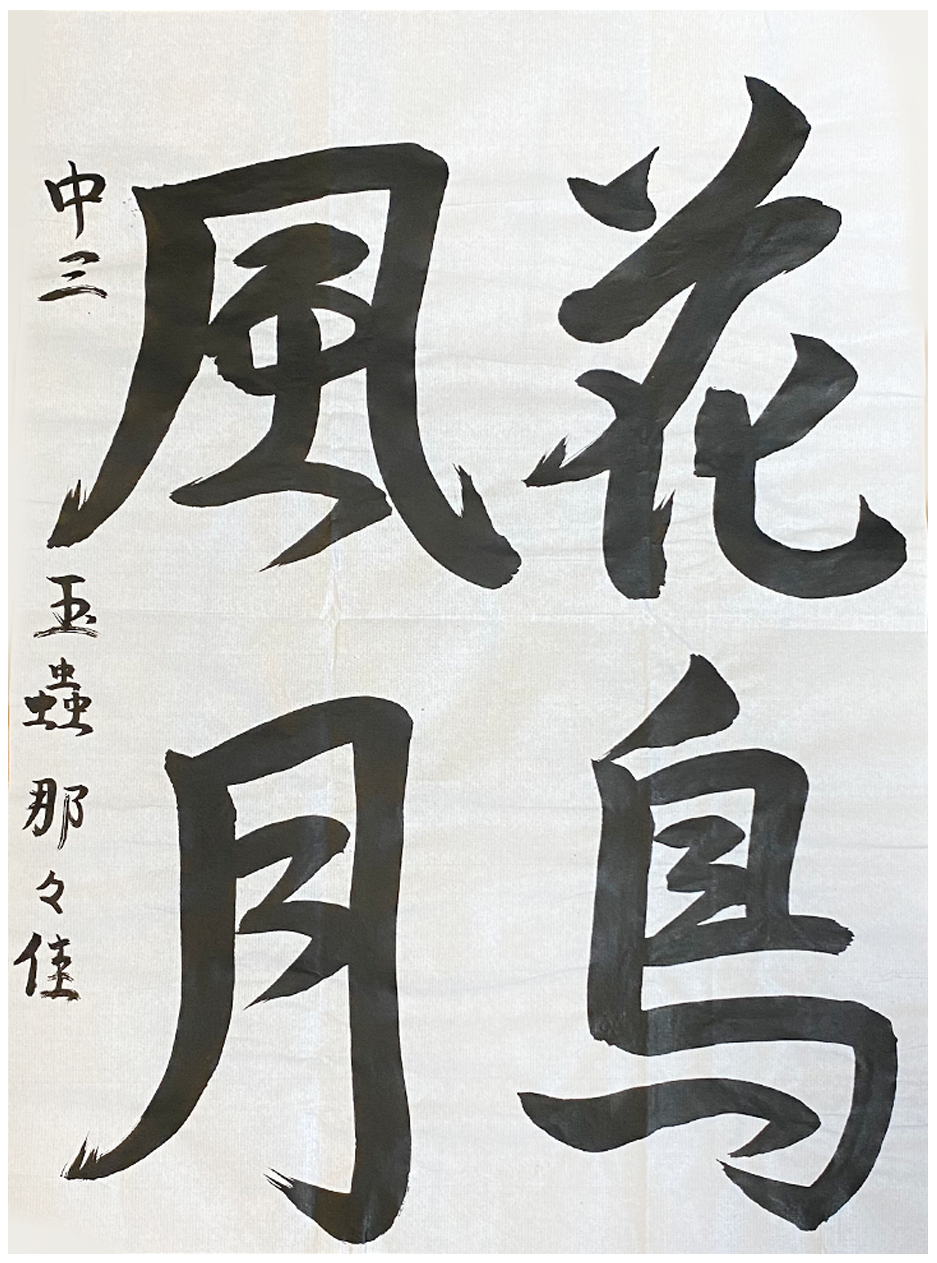 花鳥
風月
中三 玉蟲 那々佳